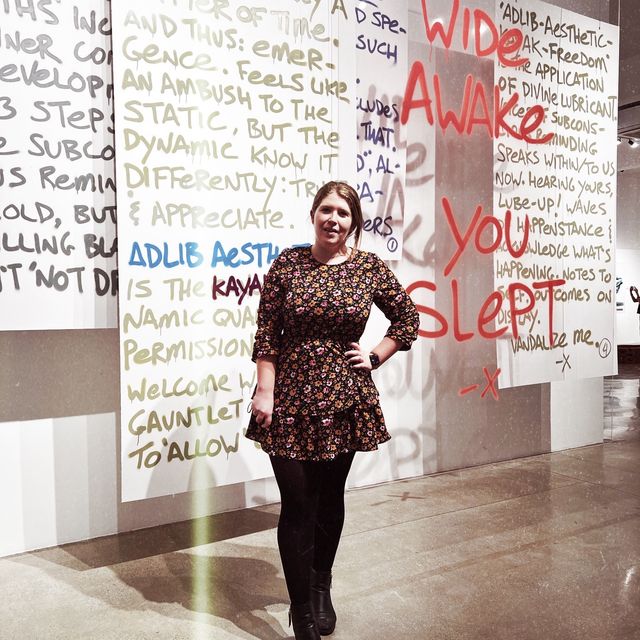 THS' INC
NNER CO
EVELOP
3 STEPS
E SUBCO
US REMIN
OLD, BUT
LLING BLA
T 'NOT DR
TTER OF TIME.
AND THUS: EMER-
GENCE. FEELS LIKE
AN AMBUSH TO THE
STATIC, BUT THE
DYNAMIC KNOW IT
DIFFERENTLY: TR
& APPRECIATE.
ADLIB AeSTH
IS THE KAYA
NAMIC QUA
PERMISSION
WELCOME W
GAUNTLET
TO 'ALLOW
D SPE-
SUCH
LUDES
THAT.
D", AL-
A-
ERS
1
WIDE
AWAKe
YOU
SLePT
-X
"ADLIB-AeSTHETIC-
AK-FREEDOM"
THE APPLICATION
OF DIVINE LUBRICANT
SUBCONS-
MINDING
SPEAKS WITHIN/TO US
NOW. HEARING YOURS,
LUBE-UP! WAVES
HAPPENSTANCE &
WLEDGE WHAT'S
HAPPENING. NOTES TO
OUTCOMES ON
DISPLAY.
VANDALIZE me.
-X
4